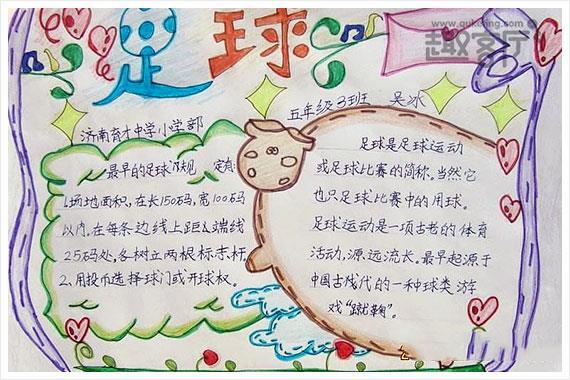 www.quketing.com
趣客厅
足球
济南育才中学小学部
五年级3班 吴冰
最早的足球规 定有:
1.场地面积,在长150码,宽100码
以内,在每条边线上距端线
25码处,各树立两根标志杆
2.用投币选择球门或开球权。
足球是足球运动
或足球比赛的简称。当然它
也只足球比赛中的用球。
足球运动是一项古老的体育
活动,源远流长。最早起源于
中国古代的一种球类游
戏“蹴鞠”。